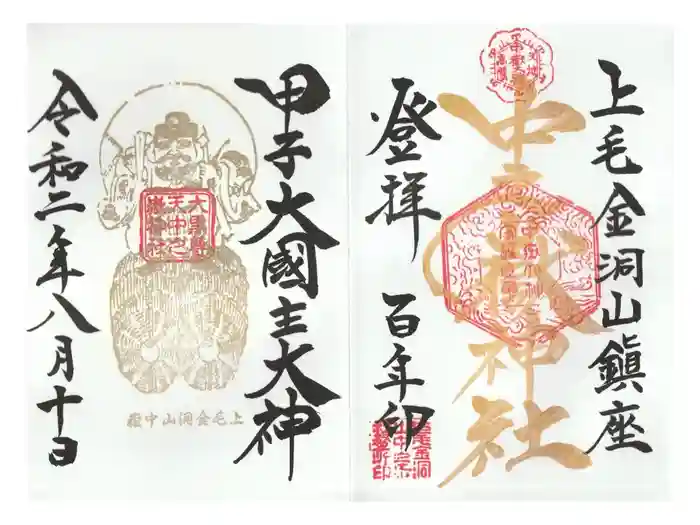 上毛金洞山鎮座
中之嶽神社
登拝 百年印
甲子大國主大神
上毛金洞山中嶽
令和二年八月十日